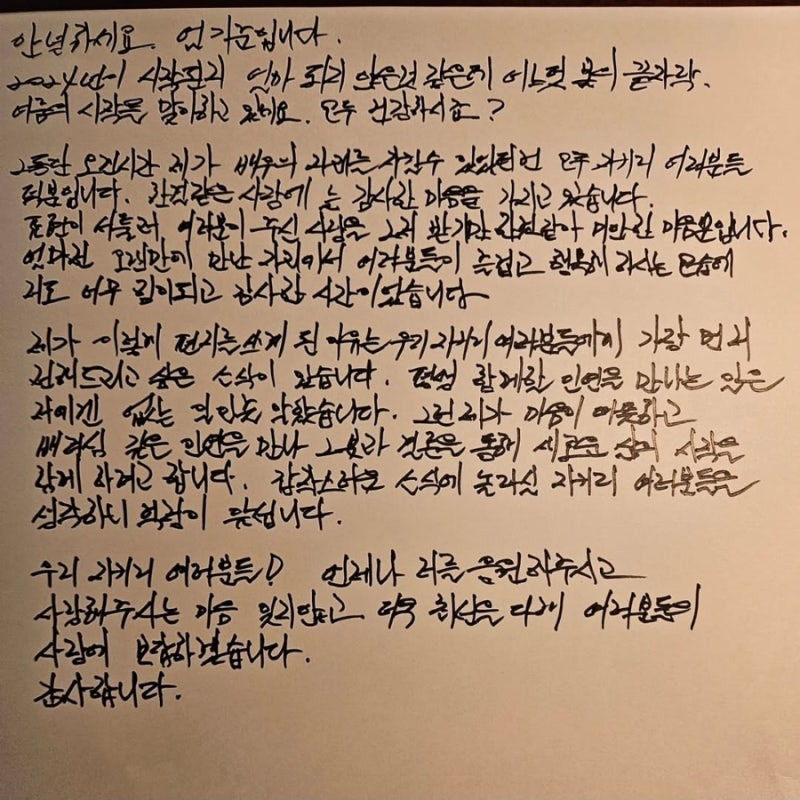 안녕하세요. 엄기준입니다.
2024년이 시작된지 얼마 되지 않은것 같은데 어느덧 봄의 끝자락.
여름의 시작을 맞이하고 있네요. 모두 건강하시죠?
그동안 오랜시간 제가 배우의 자리를 지킬수 있었던건 모두 자기리 여러분들
덕분입니다. 한결같은 사랑에 늘 감사한 마음을 가지고 있습니다.
표현이 서툴러 여러분이 주신 사랑을 그저 받기만 한것같아 미안한 마음뿐입니다.
얼마전 오랜만에 만난 자리에서 여러분들이 즐겁고 행복해 하시는 모습에
저도 너무 힘이되고 감사한 시간이었습니다.
제가 이렇게 편지를 쓰게 된 이유는 우리 자기리 여러분들에게 가장 먼저
전해드리고 싶은 소식이 있습니다. 평생 함께할 인연을 만나는 일은
저에겐 없는 일인줄 알았습니다. 그런 제가 마음이 따뜻하고
배려심 깊은 인연을 만나 그분과 결혼을 통해 새로운 삶의 시작을
함께 하려고 합니다. 갑작스러운 소식에 놀라실 자기리 여러분들을
생각하니 걱정이 앞섭니다.
우리 자기리 여러분들! 언제나 저를 응원해주시고
사랑해주시는 마음 잊지않고 더욱 최선을 다해 여러분들의
사랑에 보답하겠습니다.
감사합니다.